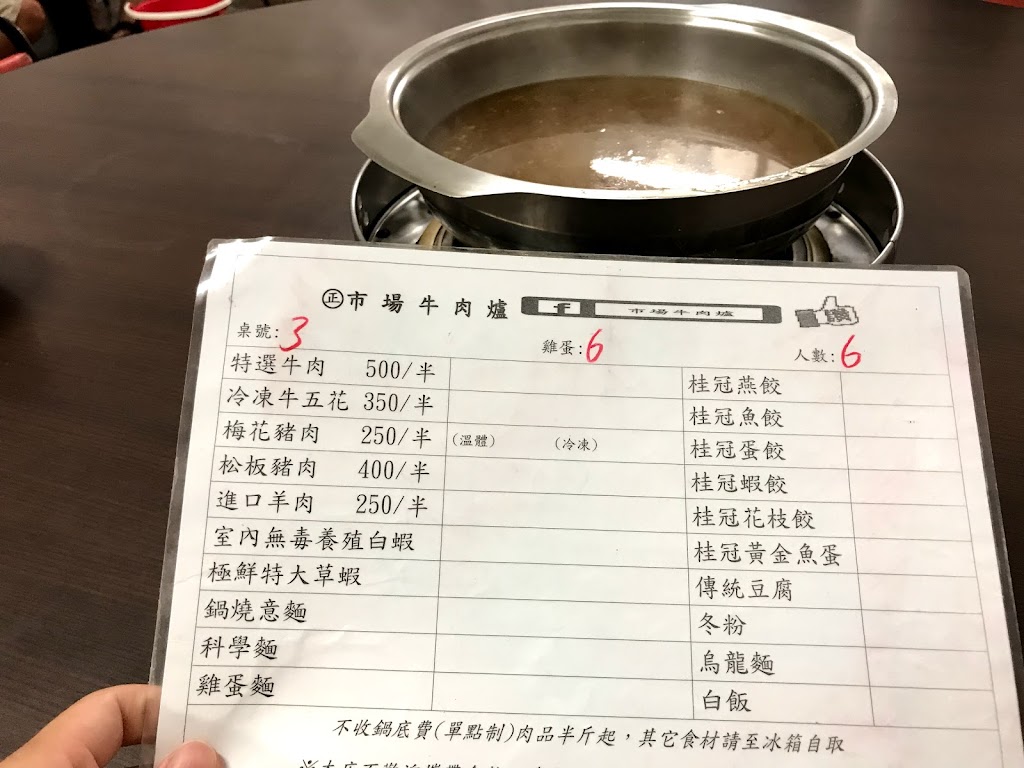 ㊣市場牛肉爐 f 市場牛肉爐 讚
桌號:3 雞蛋:6 人數:6
特選牛肉 500/半 桂冠燕餃
冷凍牛五花 350/半 桂冠魚餃
梅花豬肉 250/半 (溫體) (冷凍) 桂冠蛋餃
松板豬肉 400/半 桂冠蝦餃
進口羊肉 250/半 桂冠花枝餃
室內無毒養殖白蝦 桂冠黃金魚蛋
極鮮特大草蝦 傳統豆腐
鍋燒意麵 冬粉
科學麵 烏龍麵
雞蛋麵 白飯
不收鍋底費(單點制)肉品半斤起，其它食材請至冰箱自取